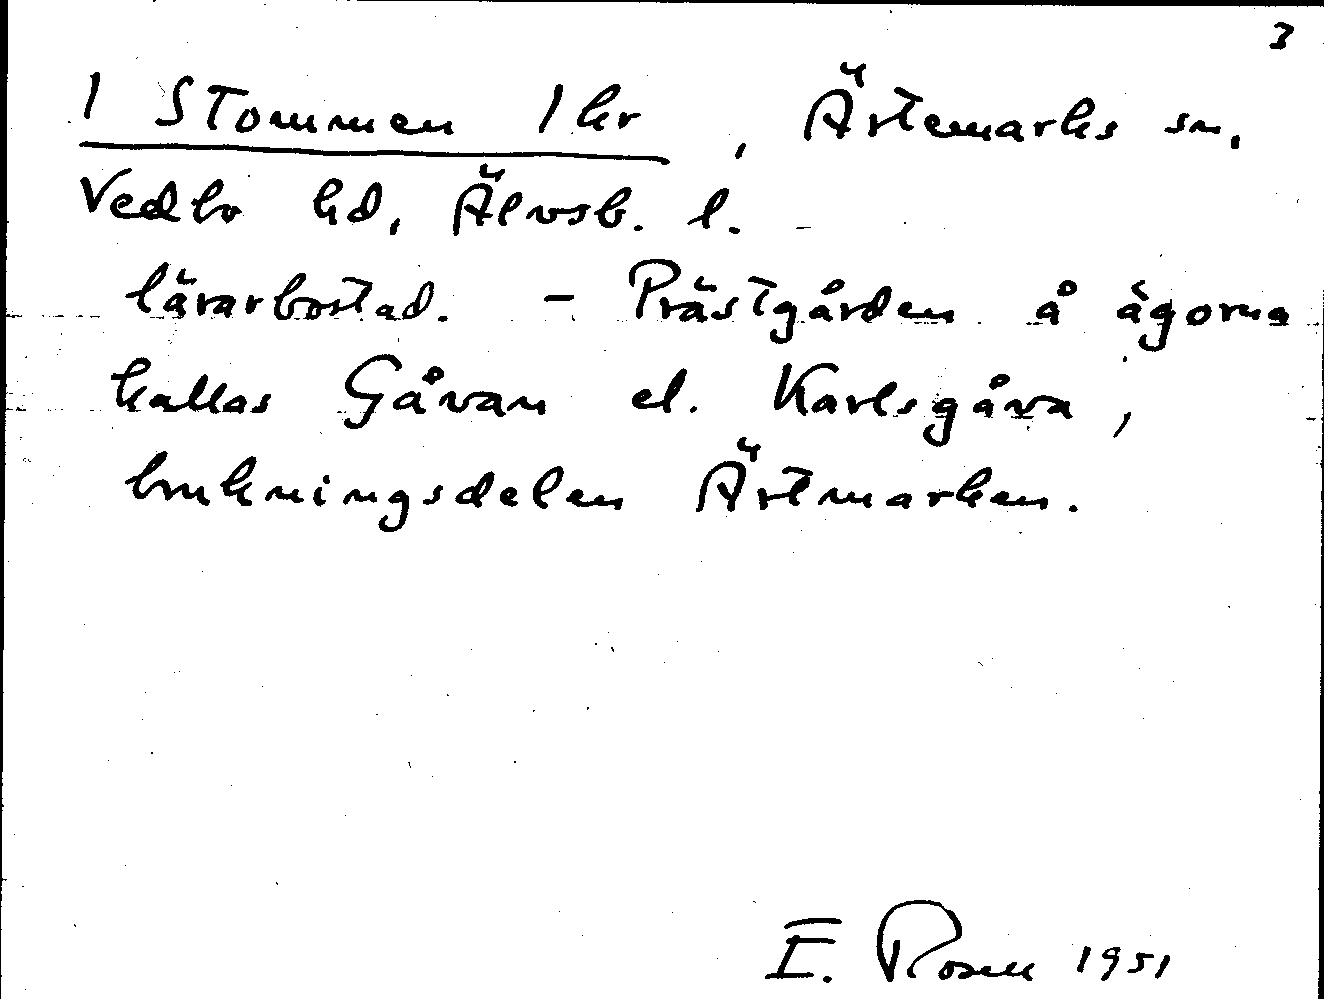 3
1 Stommen 1 kr, Ärtemarks sn.
Vedbo hd, Älvsb. l.
lärarbostad. – Prästgården å ägorna
kallas Gåvan el. Karlsgåva,
brukningsdelen Ärtmarken.
E. Rosell 1951